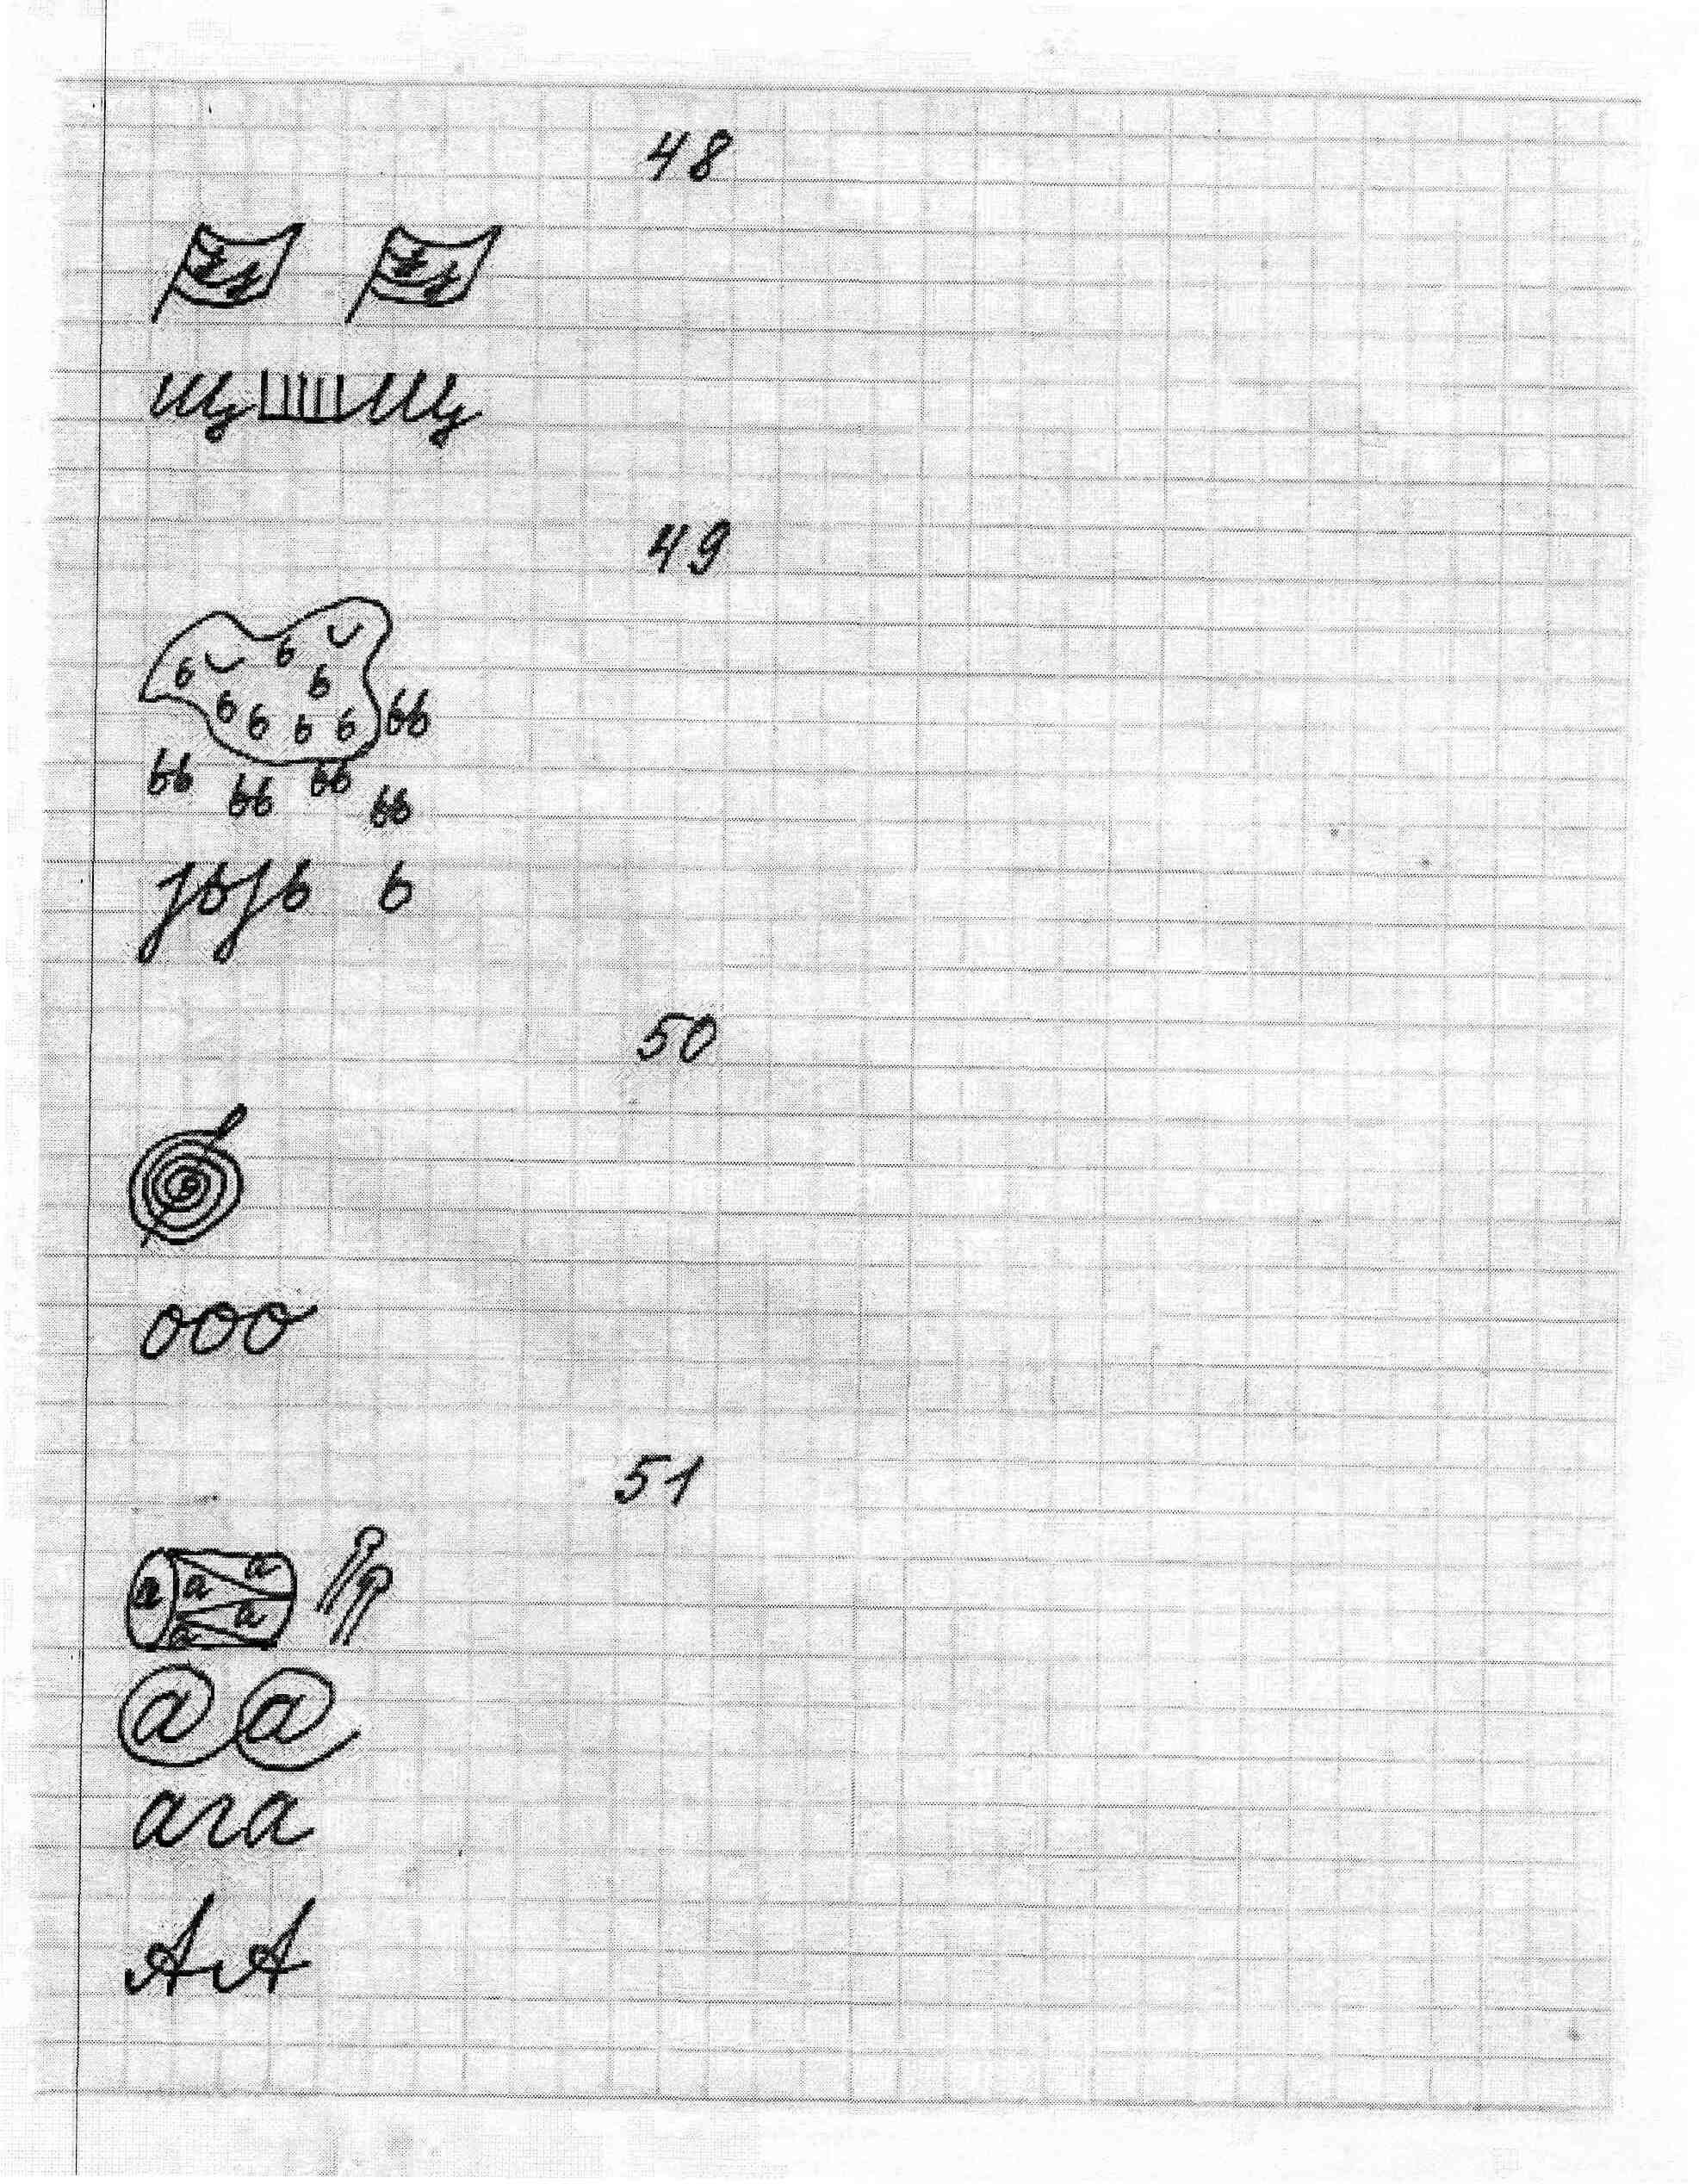 48
щ щ
49
ь ь
ь
ь ь ь ь ьь
ьь ьь ьь ьь
ь
50
ооо
51
а а а а а
а а
ага
А А